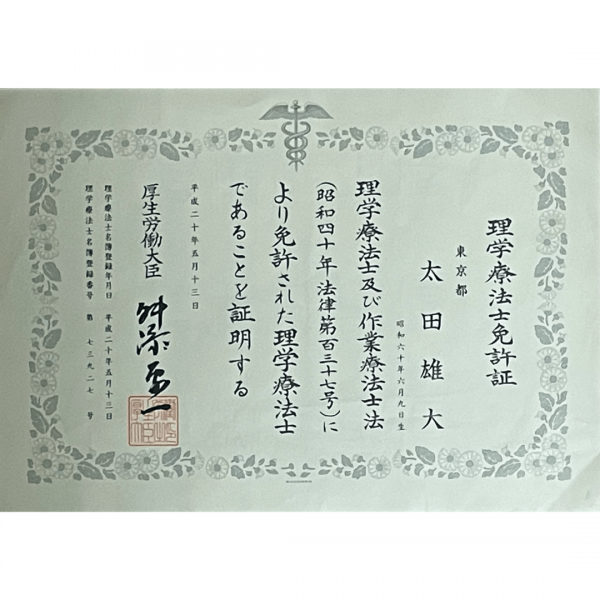 理学療法士免許証
東京都
太田雄大
昭和六十年六月九日生
理学療法士及び作業療法士法
(昭和四十年法律第百三十七号)に
より免許された理学療法士
であることを証明する
平成二十年五月十三日
厚生労働大臣
舛添要一
理学療法士名簿登録年月日 平成二十年五月十三日
理学療法士名簿登録番号 第 七三九二七 号